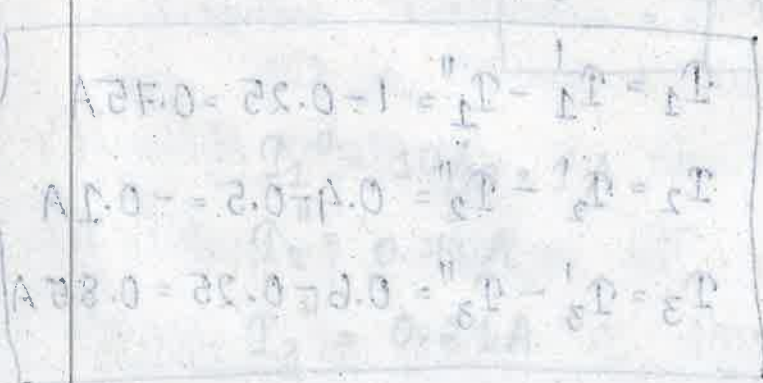 I₁ = I₁' - I₁'' = 1 - 0.25 = 0.75A
I₂ = I₂' - I₂'' = 0.4 - 0.5 = - 0.1A
I₃ = I₃' - I₃'' = 0.6 - 0.25 = 0.35A